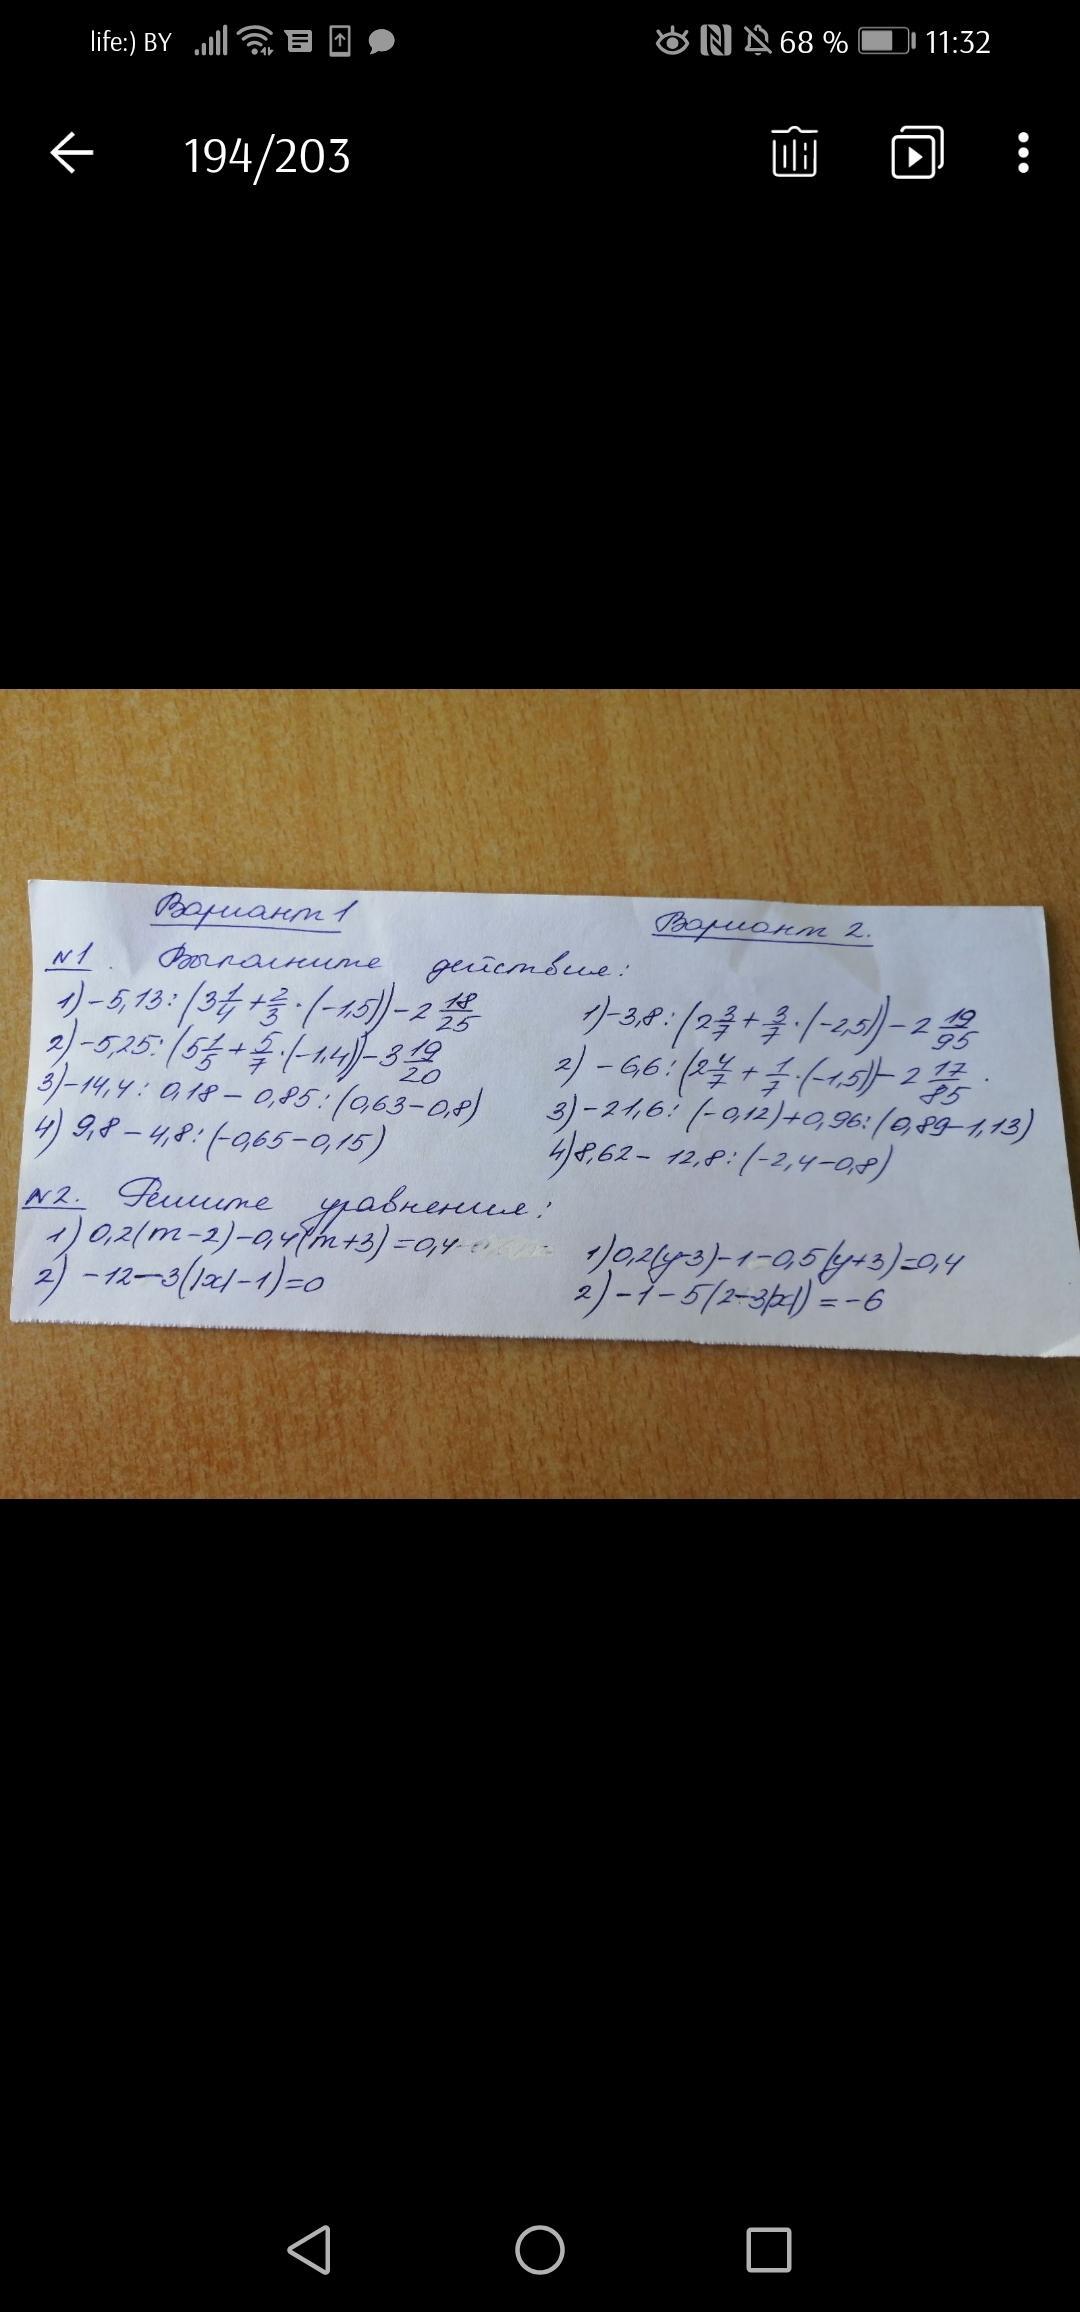 life:) BY 68 % 11:32
194/203
Вариант 1
Вариант 2.
№1. Выполните действия:
1) -5,13 : (3 1/4 + 2/3 · (-1,5)) - 2 18/25
1) -3,8 : (2 3/7 + 3/7 · (-2,5)) - 2 19/95
2) -5,25 : (5 1/5 + 5/7 · (-1,4)) - 3 19/20
2) -6,6 : (2 4/7 + 1/7 · (-1,5)) - 2 17/85.
3) -14,4 : 0,18 - 0,85 : (0,63 - 0,8)
3) -21,6 : (-0,12) + 0,96 : (0,89 - 1,13)
4) 9,8 - 4,8 : (-0,65 - 0,15)
4) 8,62 - 12,8 : (-2,4 - 0,8)
№2. Решите уравнения:
1) 0,2(m-2) - 0,4(m+3) = 0,4
1) 0,2(y-3) - 1 - 0,5(y+3) = 0,4
2) -12 - 3(|x| - 1) = 0
2) -1 - 5(2 - 3|x|) = -6